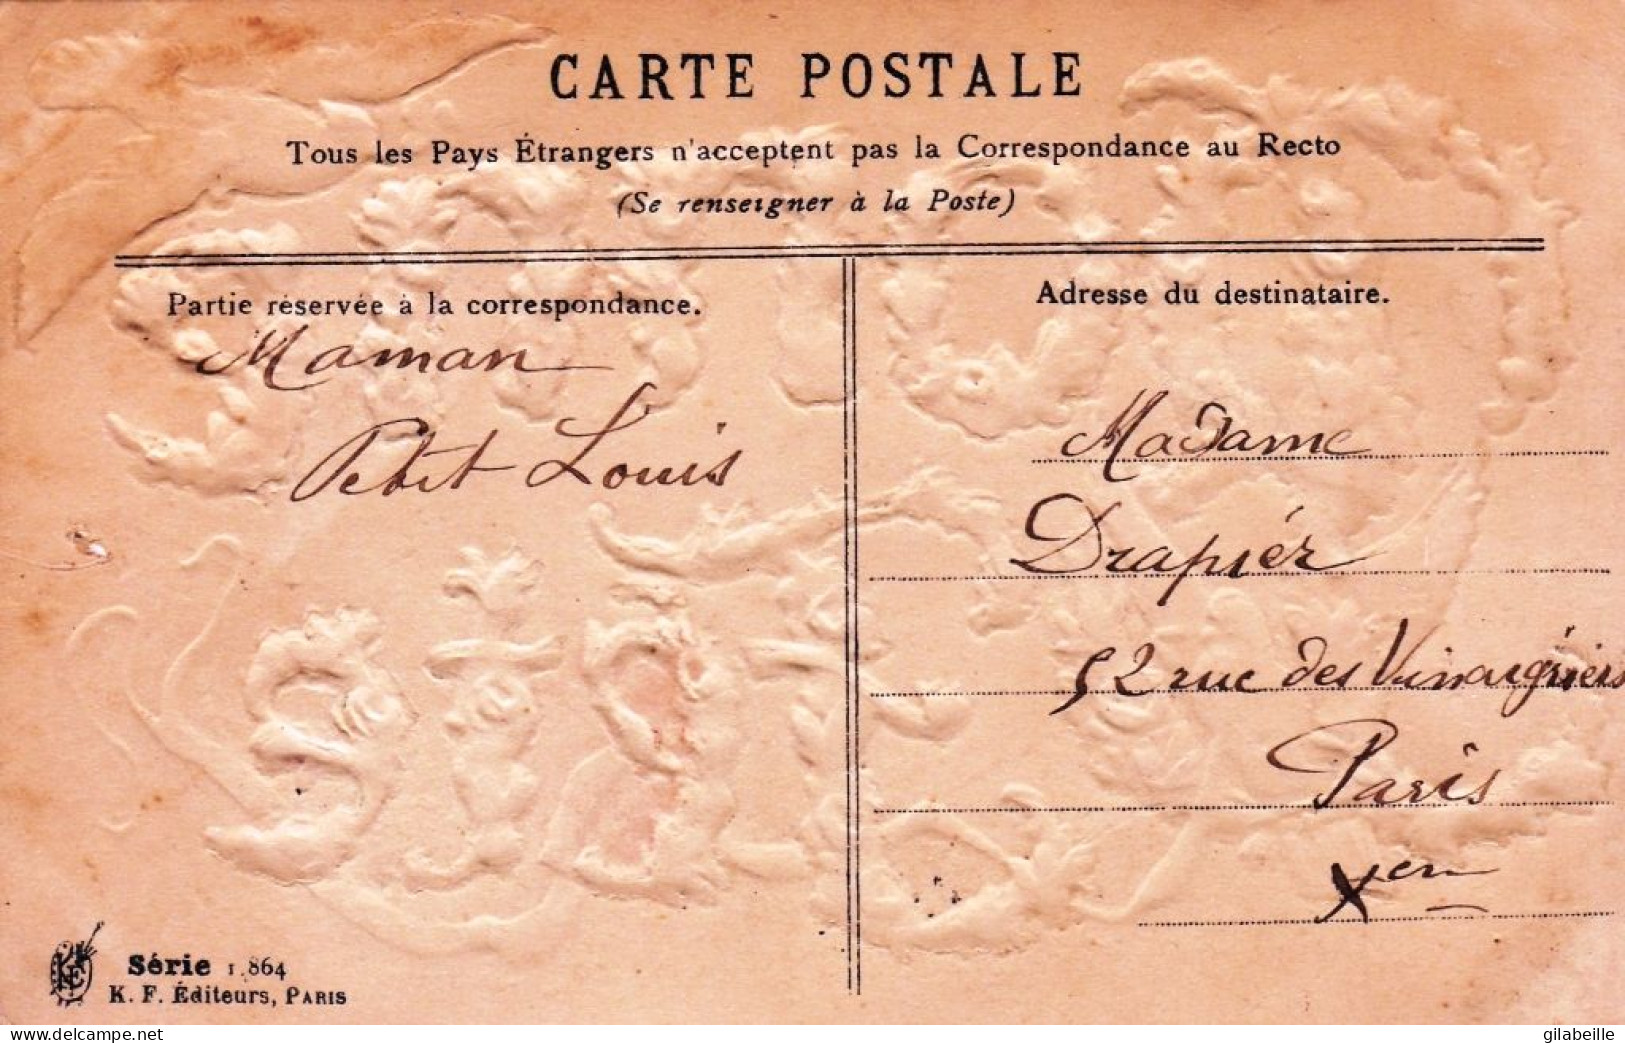 CARTE POSTALE
Tous les Pays Étrangers n'acceptent pas la Correspondance au Recto
(Se renseigner à la Poste)
Partie réservée à la correspondance.
Maman
Petit Louis
Adresse du destinataire.
Madame
Drapiér
52 rue des Vinaigriérs
Paris
Xem
Série 1.864
K. F. Éditeurs, PARIS
www.delcampe.net
gilabeille